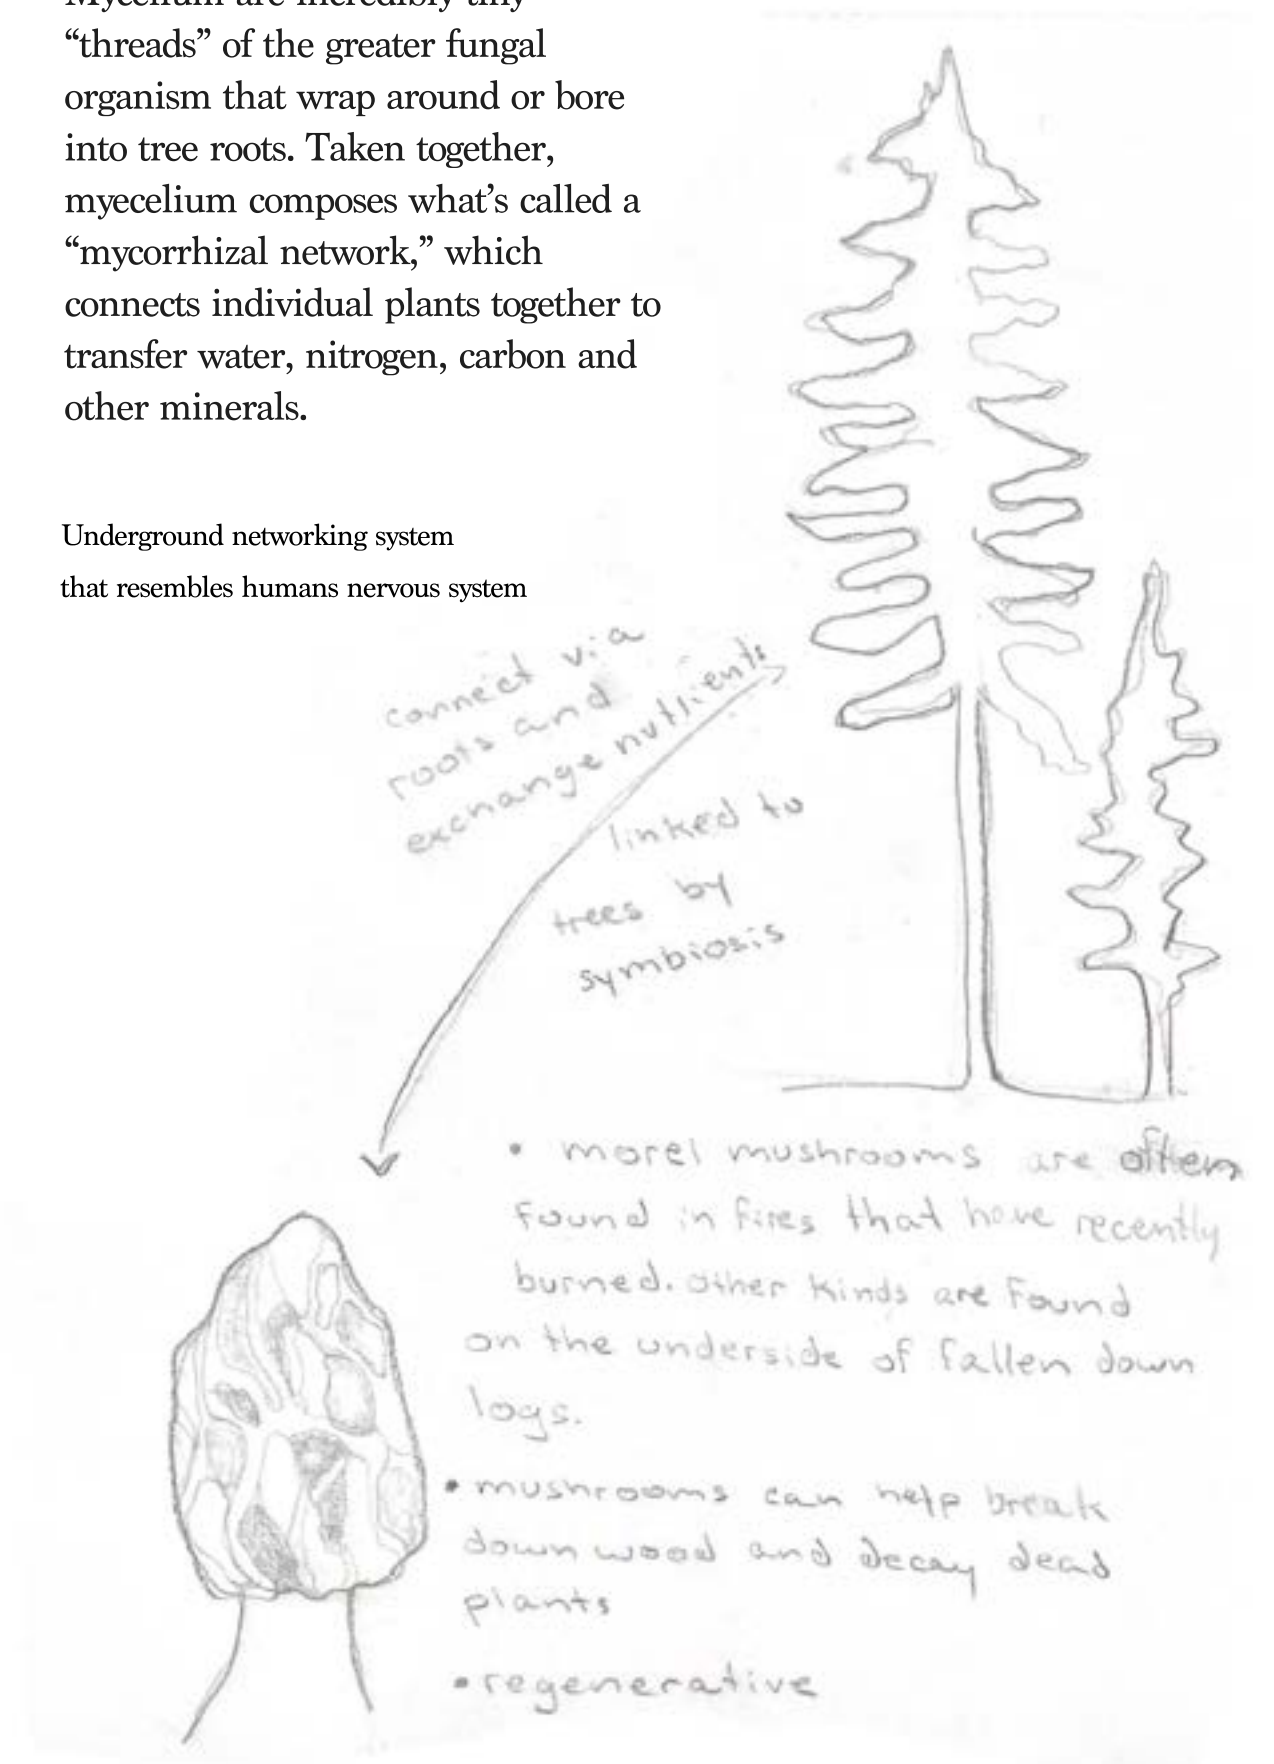 Mycelium are incredibly tiny
“threads” of the greater fungal
organism that wrap around or bore
into tree roots. Taken together,
myecelium composes what’s called a
“mycorrhizal network,” which
connects individual plants together to
transfer water, nitrogen, carbon and
other minerals.
Underground networking system
that resembles humans nervous system
connect via
roots and
exchange nutrients
linked to
trees by
symbiosis
• morel mushrooms are often
found in fires that have recently
burned. other kinds are found
on the underside of fallen down
logs.
• mushrooms can help break
down wood and decay dead
plants
• regenerative